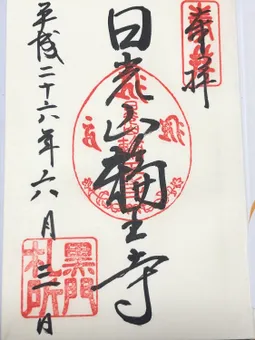 奉拝
日光山輪王寺
平成二十六年六月三日
黒門
札所